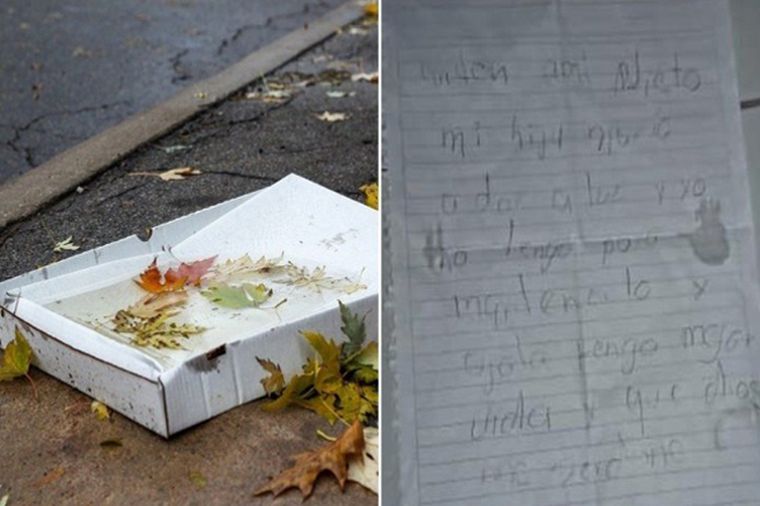 ami Nieto
mi hija murió
a dar a luz y yo
no tengo para
mantenerlo y
ojala tenga mejor
vida y que dios
me perdone